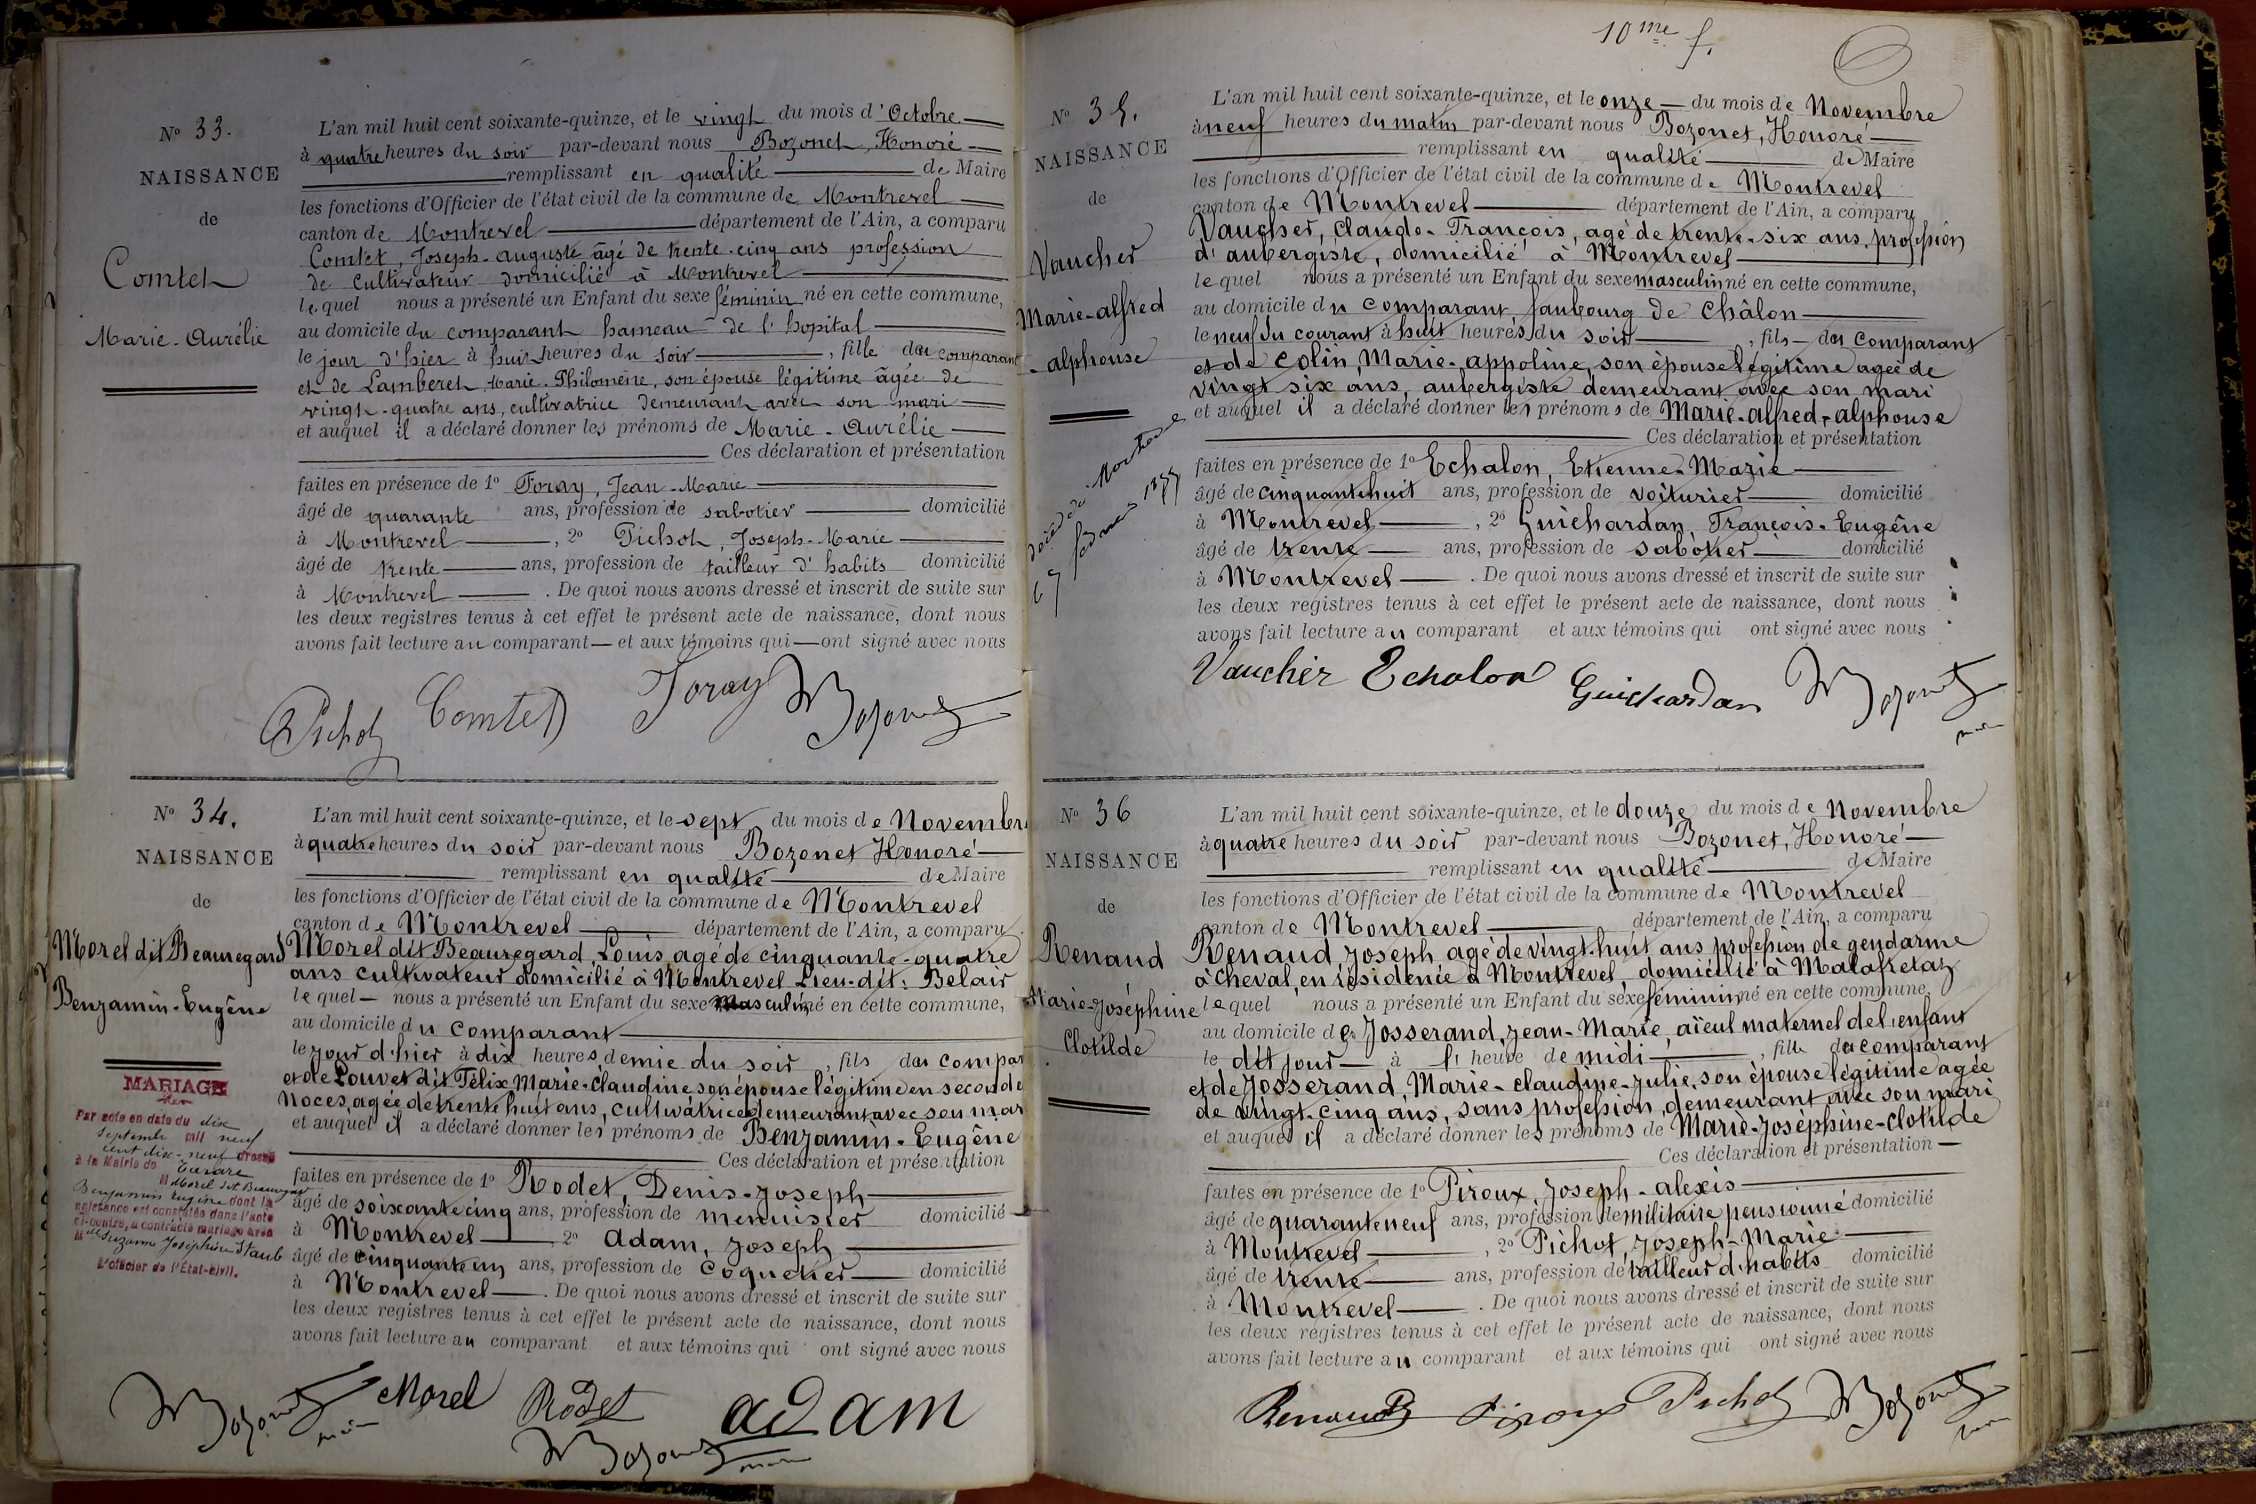 Nº 33.
NAISSANCE
de
Comtet
Marie-Aurélie
L'an mil huit cent soixante-quinze, et le vingt du mois d'Octobre
à quatre heures du soir par-devant nous Bozonet, Honoré
remplissant en qualité de Maire
les fonctions d'Officier de l'état civil de la commune de Montrevel
canton de Montrevel département de l'Ain, a comparu
Comtet, Joseph-auguste âgé de trente-cinq ans profession
de cultivateur domicilié à Montrevel
lequel nous a présenté un Enfant du sexe féminin né en cette commune,
au domicile du comparant hameau de l'hopital
le jour d'hier à huit heures du soir, fille du comparant
et de Lamberet, Marie-Philomène, son épouse légitime âgée de
vingt-quatre ans, cultivatrice demeurant avec son mari
et auquel il a déclaré donner les prénoms de Marie-Aurélie
Ces déclaration et présentation
faites en présence de 1º Foray, Jean-Marie
âgé de quarante ans, profession de sabotier domicilié
à Montrevel, 2º Pichot, Joseph-Marie
âgé de trente ans, profession de tailleur d'habits domicilié
à Montrevel. De quoi nous avons dressé et inscrit de suite sur
les deux registres tenus à cet effet le présent acte de naissance, dont nous
avons fait lecture au comparant et aux témoins qui ont signé avec nous
Pichot Comtet Foray Bozonet
Nº 34.
NAISSANCE
de
Morel dit Beauregard
Benjamin-Eugêne
MARIAGE
Par acte en date du dix
septembre mil neuf
cent dix-neuf dressé
à la Mairie de Tarare
M Morel dit Beauregard
Benjamin Eugène dont la
naissance est constatée dans l'acte
ci-contre, a contracté mariage avec
Mlle Suzanne Joséphine Staub
L'officier de l'État-civil.
L'an mil huit cent soixante-quinze, et le sept du mois de Novembre
à quatre heures du soir par-devant nous Bozonet Honoré
remplissant en qualité de Maire
les fonctions d'Officier de l'état civil de la commune de Montrevel
canton de Montrevel département de l'Ain, a comparu
Morel dit Beauregard, Louis, agé de cinquante-quatre
ans cultivateur domicilié à Montrevel Lieu-dit: Belair
lequel nous a présenté un Enfant du sexe masculin né en cette commune,
au domicile du comparant
le jour d'hier à dix heures demie du soir, fils du compar
et de Louvet dit Félix, Marie-Claudine son épouse légitime en seconde
Noces, agée de trente huit ans, cultivatrice demeurant avec son mar
et auquel il a déclaré donner les prénoms de Benjamin-Eugêne
Ces déclaration et présentation
faites en présence de 1º Rodet, Denis-Joseph
âgé de soixante cinq ans, profession de menuisier domicilié
à Montrevel 2º Adam, Joseph
âgé de cinquante un ans, profession de coquetier domicilié
à Montrevel. De quoi nous avons dressé et inscrit de suite sur
les deux registres tenus à cet effet le présent acte de naissance, dont nous
avons fait lecture au comparant et aux témoins qui ont signé avec nous
Bozonet maire Morel Rodet adam
Bozonet maire
10me f.
Nº 35.
NAISSANCE
de
Vaucher
Marie-alfred
-alphonse
décédé à
67 1877
L'an mil huit cent soixante-quinze, et le onze du mois de Novembre
à neuf heures du matin par-devant nous Bozonet, Honoré
remplissant en qualité de Maire
les fonctions d'Officier de l'état civil de la commune de Montrevel
canton de Montrevel département de l'Ain, a comparu
Vaucher, Claude-François, agé de trente-six ans, profession
d'aubergiste, domicilié à Montrevel
lequel nous a présenté un Enfant du sexe masculin né en cette commune,
au domicile du comparant, faubourg de Châlon
le neuf du courant à huit heures du soir, fils du comparant
et de Colin, Marie-appoline, son épouse légitime agée de
vingt six ans, aubergiste demeurant avec son mari
et auquel il a déclaré donner les prénoms de Marie-alfred-alphonse
Ces déclaration et présentation
faites en présence de 1º Echalon, Etienne-Marie
âgé de cinquante huit ans, profession de voiturier domicilié
à Montrevel, 2º Guichardan, François-Eugêne
âgé de trente ans, profession de sabotier domicilié
à Montrevel. De quoi nous avons dressé et inscrit de suite sur
les deux registres tenus à cet effet le présent acte de naissance, dont nous
avons fait lecture au comparant et aux témoins qui ont signé avec nous
Vaucher Echalon Guichardan Bozonet
Nº 36
NAISSANCE
de
Renaud
Marie-Joséphine
Clotilde
L'an mil huit cent soixante-quinze, et le douze du mois de Novembre
à quatre heures du soir par-devant nous Bozonet, Honoré
remplissant en qualité de Maire
les fonctions d'Officier de l'état civil de la commune de Montrevel
canton de Montrevel département de l'Ain, a comparu
Renaud, Joseph, agé de vingt-huit ans profession de gendarme
à cheval, en résidence à Montrevel, domicilié à Malafretaz
lequel nous a présenté un Enfant du sexe féminin né en cette commune,
au domicile de Josserand, Jean-Marie, aïeul maternel de l'enfant
le dit jour à l'heure de midi, fille du comparant
et de Josserand, Marie-Claudine-Julie, son épouse légitime agée
de vingt-cinq ans, sans profession, demeurant avec son mari
et auquel il a déclaré donner les prénoms de Marie-Joséphine-Clotilde
Ces déclaration et présentation
faites en présence de 1º Piroux, Joseph-alexis
âgé de quarante neuf ans, profession de militaire pensionné domicilié
à Montrevel, 2º Pichot, Joseph-Marie
âgé de trente ans, profession de tailleur d'habits domicilié
à Montrevel. De quoi nous avons dressé et inscrit de suite sur
les deux registres tenus à cet effet le présent acte de naissance, dont nous
avons fait lecture au comparant et aux témoins qui ont signé avec nous
Renaud Piroux Pichot Bozonet